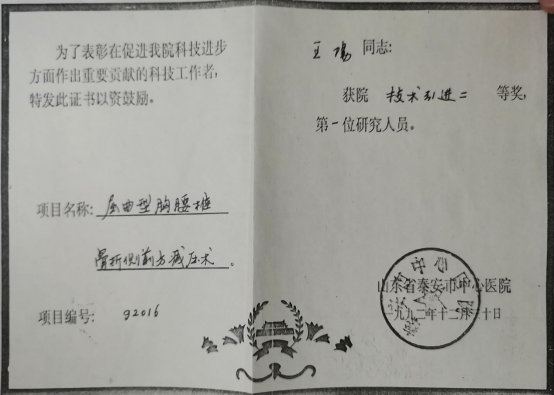 为了表彰在促进我院科技进步
方面作出重要贡献的科技工作者，
特发此证书以资鼓励。
项目名称：屈曲型胸腰椎
骨折侧前方减压术。
项目编号：92016
王陽同志：
获院 技术引进二 等奖，
第一位研究人员。
山东省泰安市中心医院
一九九二年十二月三十日